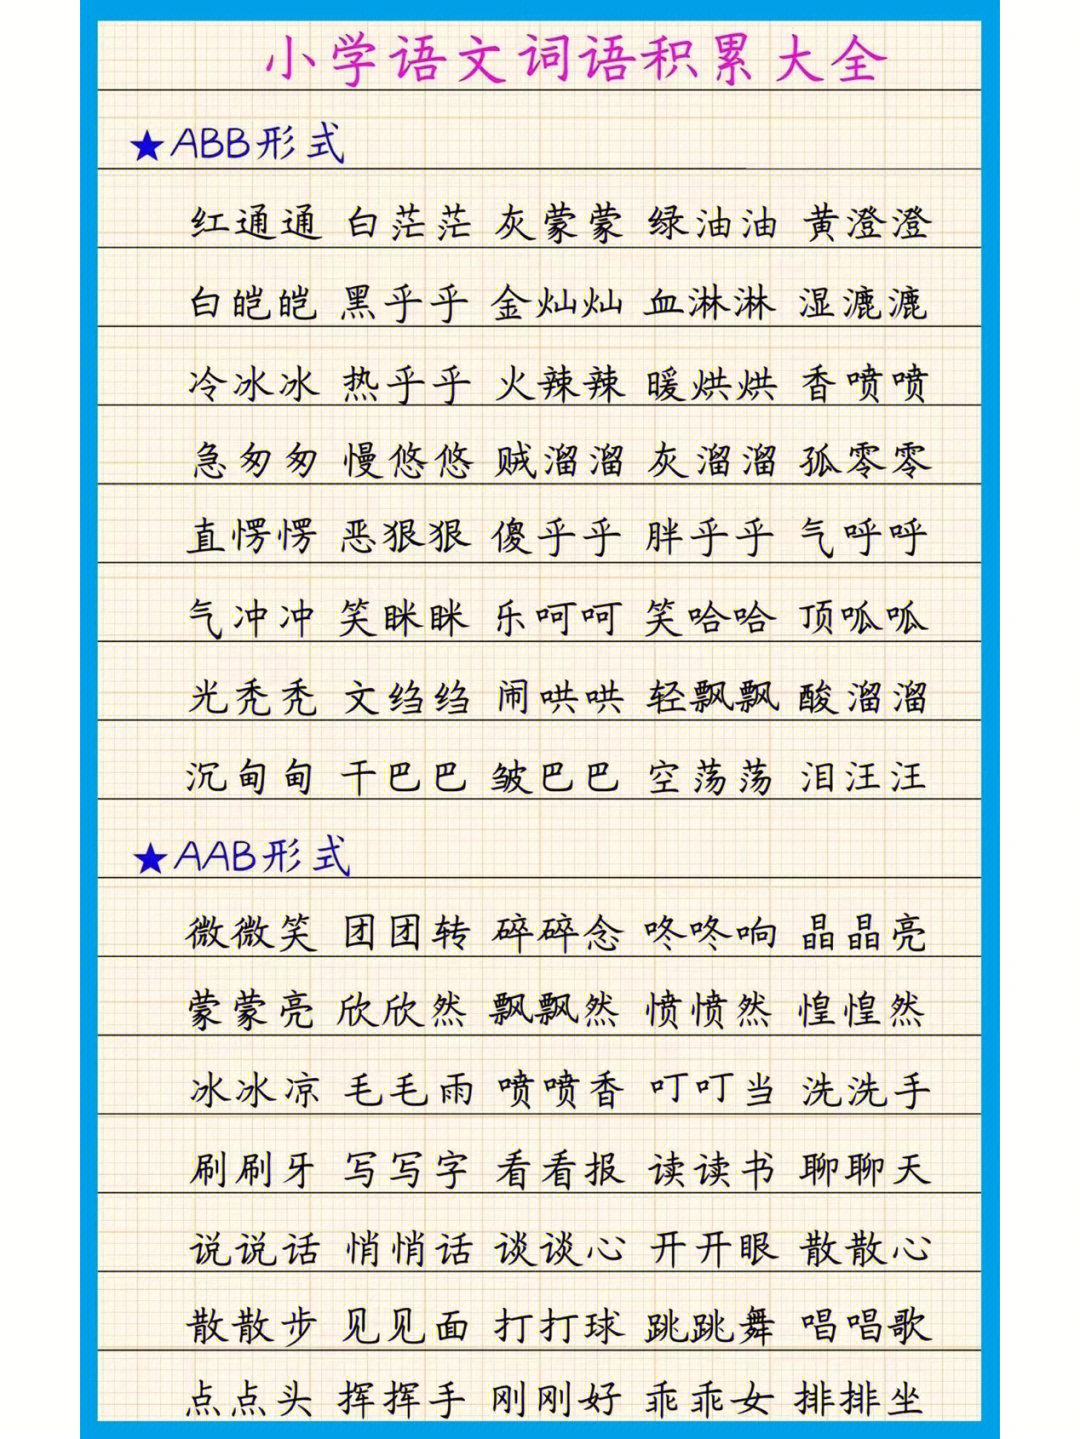 小学语文词语积累大全
★ABB形式
红通通 白茫茫 灰蒙蒙 绿油油 黄澄澄
白皑皑 黑乎乎 金灿灿 血淋淋 湿漉漉
冷冰冰 热乎乎 火辣辣 暖烘烘 香喷喷
急匆匆 慢悠悠 贼溜溜 灰溜溜 孤零零
直愣愣 恶狠狠 傻乎乎 胖乎乎 气呼呼
气冲冲 笑眯眯 乐呵呵 笑哈哈 顶呱呱
光秃秃 文绉绉 闹哄哄 轻飘飘 酸溜溜
沉甸甸 干巴巴 皱巴巴 空荡荡 泪汪汪
★AAB形式
微微笑 团团转 碎碎念 咚咚响 晶晶亮
蒙蒙亮 欣欣然 飘飘然 愤愤然 惶惶然
冰冰凉 毛毛雨 喷喷香 叮叮当 洗洗手
刷刷牙 写写字 看看报 读读书 聊聊天
说说话 悄悄话 谈谈心 开开眼 散散心
散散步 见见面 打打球 跳跳舞 唱唱歌
点点头 挥挥手 刚刚好 乖乖女 排排坐